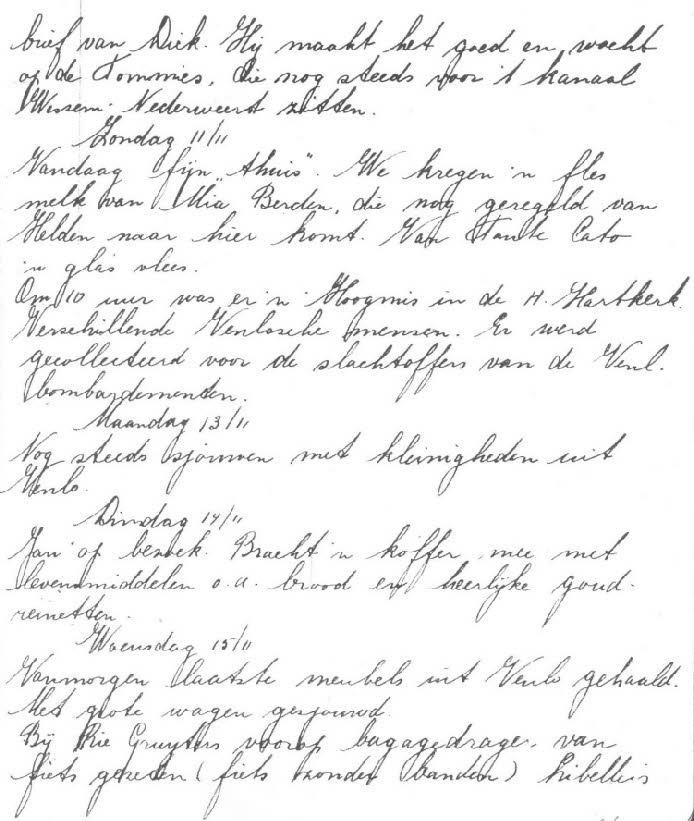 brief van Diek. Hij maakt het goed en wacht
op de Tommies, die nog steeds voor 't kanaal
Wessem-Nederweert zitten.
Zondag 11/11
Vandaag fijn „thuis". We kregen 'n fles
melk van Mia Berden, die nog geregeld van
Helden naar hier komt. Van Tante Cato
'n glas vlees.
Om 10 uur was er 'n Hoogmis in de H. Hartkerk.
Verschillende Venlosche mensen. Er werd
gecollecteerd voor de slachtoffers van de Venl.
bombardementen.
Maandag 13/11
Nog steeds sjouwen met kleinigheden uit
Venlo.
Dinsdag 14/11
Jan op bezoek. Bracht 'n koffer mee met
levensmiddelen o.a. brood en heerlijke goud-
reinetten.
Woensdag 15/11
Vanmorgen laatste meubels uit Venlo gehaald.
Met grote wagen gesjouwd.
Bij Rie Gruyters voorop bagagedrager van
fiets gereden (fiets zonder banden)